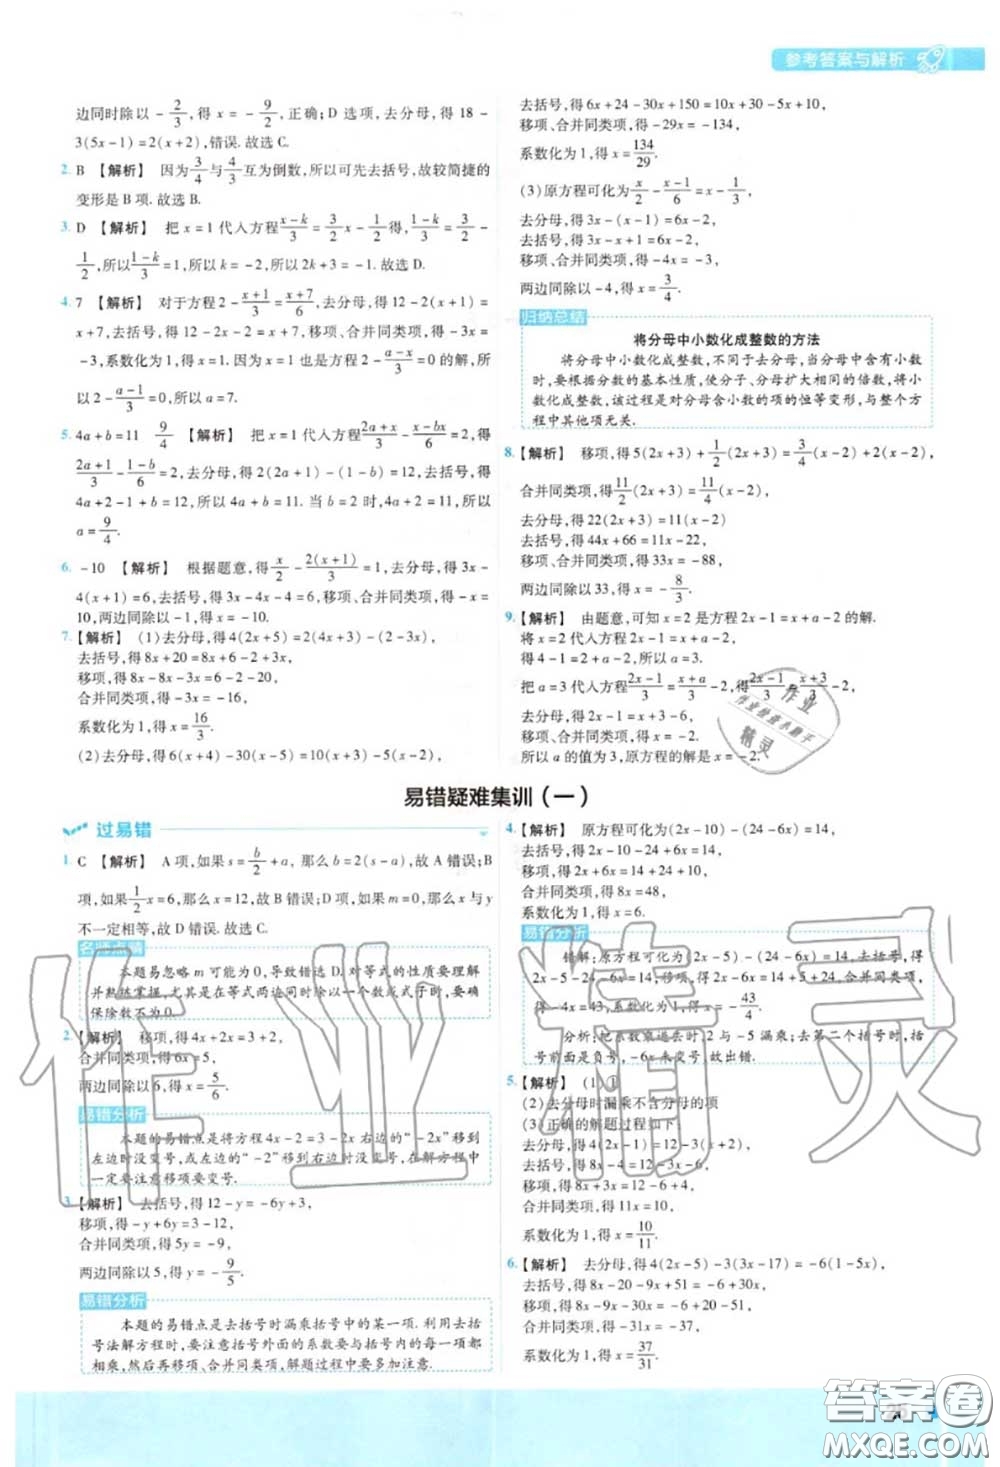 参考答案与解析
边同时除以 -2/3,得 x = -9/2,正确;D 选项,去分母,得 18 -
3(5x-1)=2(x+2),错误.故选 C.
2. B 【解析】 因为 3/4 与 4/3 互为倒数,所以可先去括号,故较简捷的
变形是 B 项.故选 B.
3. D 【解析】 把 x=1 代入方程 (x-k)/3 = 3/2 x - 1/2 得, (1-k)/3 = 3/2 -
1/2,所以 (1-k)/3 =1,所以 k=-2,所以 2k+3=-1.故选 D.
4. 7 【解析】 对于方程 2-(x+1)/3=(x+7)/6,去分母,得 12-2(x+1)=
x+7,去括号,得 12-2x-2=x+7,移项、合并同类项,得 -3x=
-3,系数化为 1,得 x=1.因为 x=1 也是方程 2-(a-x)/3=0 的解,所
以 2-(a-1)/3=0,所以 a=7.
5. 4a+b=11 9/4 【解析】 把 x=1 代入方程 (2a+x)/3-(x-bx)/6=2,得
(2a+1)/3-(1-b)/6=2,去分母,得 2(2a+1)-(1-b)=12,去括号,得
4a+2-1+b=12,所以 4a+b=11.当 b=2 时,4a+2=11,所以
a=9/4.
6. -10 【解析】 根据题意,得 x/2-2(x+1)/3=1,去分母,得 3x-
4(x+1)=6,去括号,得 3x-4x-4=6,移项、合并同类项,得 -x=
10,两边同除以 -1,得 x=-10.
7.【解析】 (1)去分母,得 4(2x+5)=2(4x-3)-(2-3x),
去括号,得 8x+20=8x-6-2+3x,
移项,得 8x-8x-3x=-6-2-20,
合并同类项,得 -3x=-28,
(2)去分母,得 6(x+4)-30(x-5)=10(x+3)-15(x-2),
去括号,得 6x+24-30x+150=10x+30-5x+10,
移项、合并同类项,得 -29x=-134,
系数化为 1,得 x=134/29.
(3)原方程可化为 x/2-(x-1)/6=x-1/3,
去分母,得 3x-(x-1)=6x-2,
去括号,得 3x-x+1=6x-2,
移项、合并同类项,得 -4x=-3,
两边同除以 -4,得 x=3/4.
归纳总结
将分母中小数化成整数的方法
将分母中小数化成整数,不同于去分母,当分母中含有小数
时,要根据分数的基本性质,使分子、分母扩大相同的倍数,将小
数化成整数,该过程是对分母含小数的项的恒等变形,与整个方
程中其他项无关.
8.【解析】 移项,得 5(2x+3)+1/2(2x+3)=3/4(x-2)+2(x-2),
合并同类项,得 11/2(2x+3)=11/4(x-2),
去分母,得 22(2x+3)=11(x-2)
去括号,得 44x+66=11x-22,
移项、合并同类项,得 33x=-88,
两边同除以 33,得 x=-8/3.
9.【解析】 由题意,可知 x=2 是方程 2x-1=x+a-2 的解.
将 x=2 代入方程 2x-1=x+a-2,
得 4-1=2+a-2,所以 a=3.
把 a=3 代入方程 (2x-1)/3=(x+a)/3-2,得 (2x-1)/3=(x+3)/3-2,
去分母,得 2x-1=x+3-6,
移项、合并同类项,得 x=-2.
所以 a 的值为 3,原方程的解是 x=-2.
易错疑难集训(一)
过易错
1. C 【解析】 A 项,如果 s=b/2+a,那么 b=2(s-a),故 A 错误;B
项,如果 1/2 x=6,那么 x=12,故 B 错误;D 项,如果 m=0,那么 x 与 y
不一定相等,故 D 错误.故选 C.
名师点睛
本题易忽略 m 可能为 0,导致错选 D.对等式的性质要理解
并熟练掌握,尤其是在等式两边同时除以一个数或式子时,要确
保除数不为 0.
2.【解析】 移项,得 4x+2x=3+2,
合并同类项,得 6x=5,
两边同除以 6,得 x=5/6.
易错分析
本题的易错点是将方程 4x-2=3-2x 右边的“-2x”移到
左边时没变号,或左边的“-2”移到右边时没变号,在解方程中
一定要注意移项要变号.
3.【解析】 去括号,得 12-y=-6y+3,
移项,得 -y+6y=3-12,
合并同类项,得 5y=-9,
两边同除以 5,得 y=-9/5.
易错分析
本题的易错点是去括号时漏乘括号中的某一项.利用去括
号法解方程时,要注意括号外面的系数要与括号内的每一项都
相乘,然后再移项、合并同类项,解题过程中要多加注意.
4.【解析】 原方程可化为 (2x-10)-(24-6x)=14,
去括号,得 2x-10-24+6x=14,
移项,得 2x+6x=14+10+24,
合并同类项,得 8x=48,
系数化为 1,得 x=6.
易错分析
错解:原方程可化为(2x-5)-(24-6x)=14,去括号,得
2x-5-24-6x=14,移项,得 2x-6x=14+5+24,合并同类项,
得 -4x=43,系数化为 1,得 x=-43/4.
分析:把系数乘进去时,2 与 -5 漏乘;去第二个括号时,括
号前面是负号,-6x 未变号,故出错.
5.【解析】 (1)①
(2)去分母时漏乘不含分母的项
(3)正确的解题过程如下:
去分母,得 4(2x-1)=12-3(x+2),
去括号,得 8x-4=12-3x-6,
移项,得 8x+3x=12-6+4,
合并同类项,得 11x=10,
系数化为 1,得 x=10/11.
6.【解析】 去分母,得 4(2x-5)-3(3x-17)=
移项,得
合并同类项,得 -31x=-37,
系数化为 1,得 x=37/31.
作业精灵
答案圈
MXQE.COM